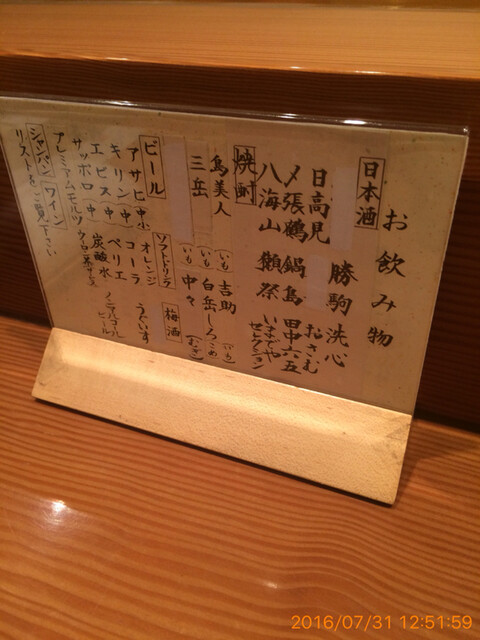 お飲み物
日本酒
勝駒 洗心
日高見 おさむ
〆張鶴 鍋島 田中六五
八海山 獺祭 いまでや
セレクション
焼酎
島美人(いも) 吉助(いも)
三岳(いも) 白岳しろ(こめ)
中々(むぎ)
ビール
アサヒ(中小)
キリン(中)
エビス(中)
サッポロ(中)
プレミアムモルツ
ソフトドリンク
オレンジ
コーラ
ペリエ
炭酸水
ウーロン茶
ノンアルコール
ビール
梅酒
うぐいす
シャンパン ワイン
リストをご覧下さい
2016/07/31 12:51:59